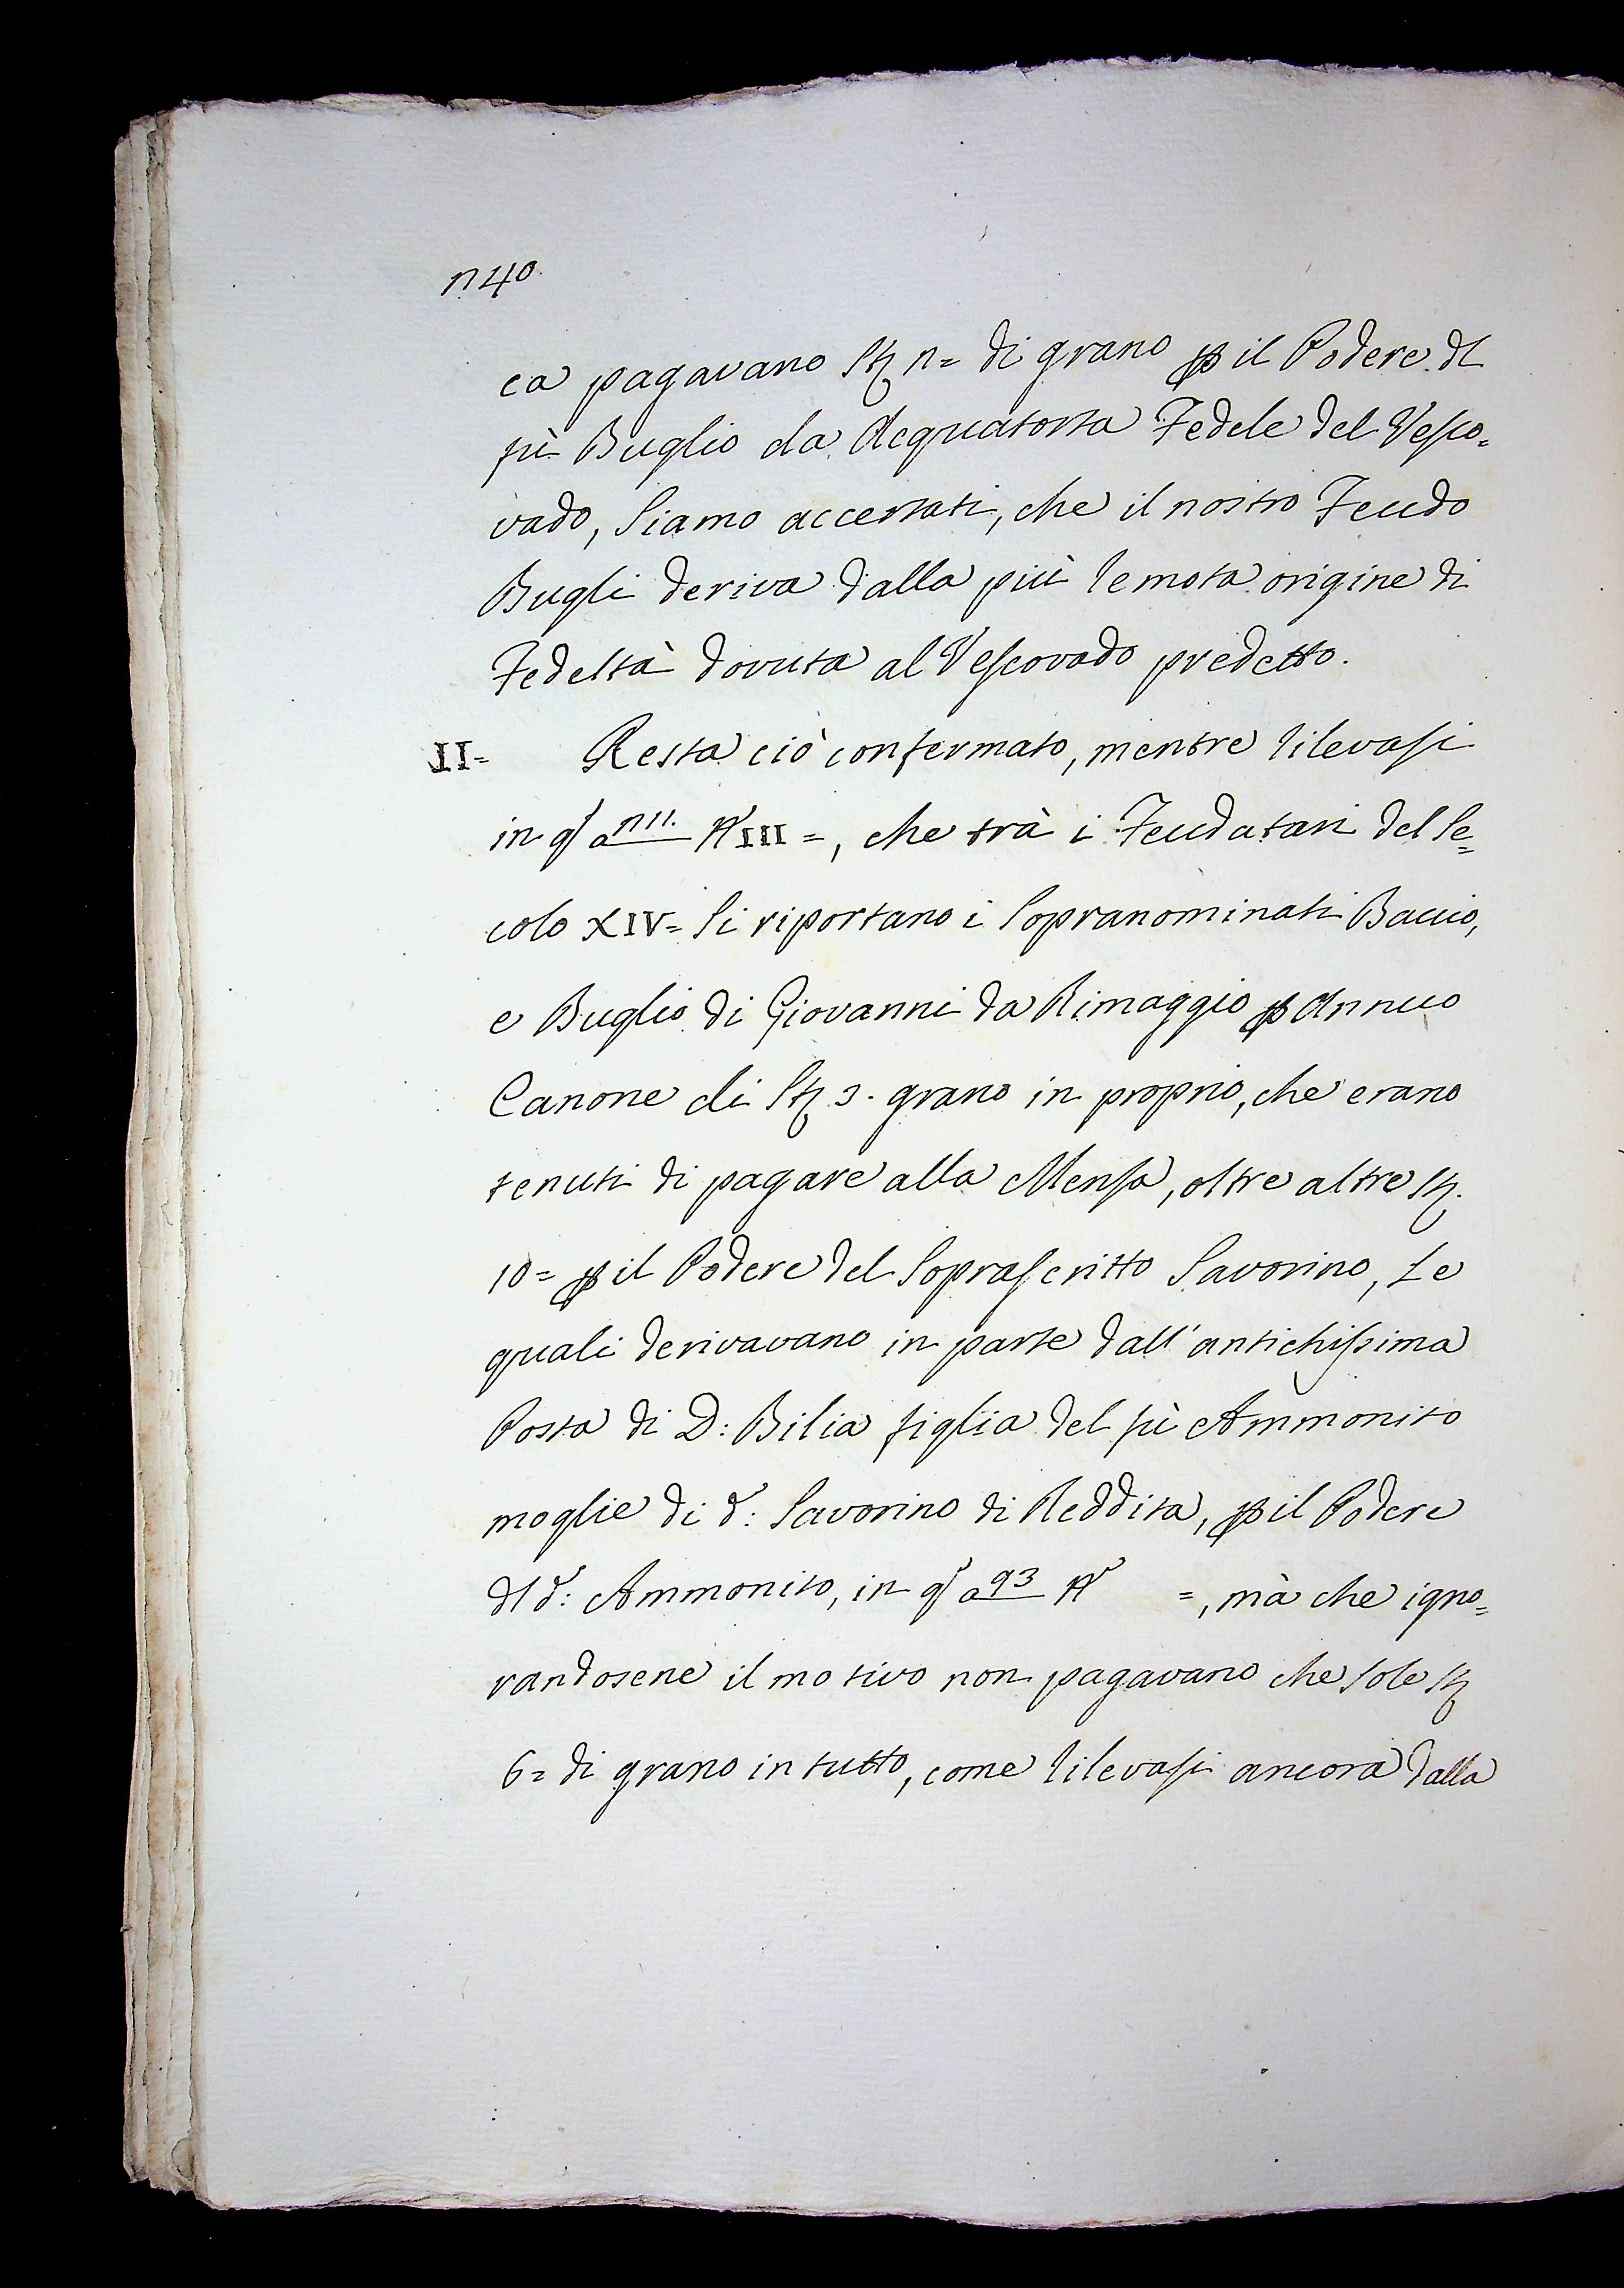 n40.
ca pagavano St. n= di grano p il Podere dl
fù Buglio da Acquatorta Fedele del Vesco=
vado, Siamo accertati, che il nostro Feudo
Bugli deriva dalla più remota origine di
Fedeltà dovuta al Vescovado predetto.
II= Resta ciò confermato, mentre rilevasi
in q a n11. III=, che trà i Feudatari del Se=
colo XIV= Si riportano i Sopranominati Baccio,
e Buglio di Giovanni da Rimaggio p Annuo
Canone di St. 3. grano in proprio, che erano
tenuti di pagare alla Mensa, oltre altre St.
10= p il Podere del Soprascritto Savorino, Le
quali derivavano in parte dall' antichissima
Posta di D: Bilia figlia del fù Ammonito
moglie di d: Savorino di Reddita, p il Podere
dl d: Ammonito, in q a 93 =, mà che igno=
randosene il motivo non pagavano che sole St.
6= di grano in tutto, come rilevasi ancora dalla